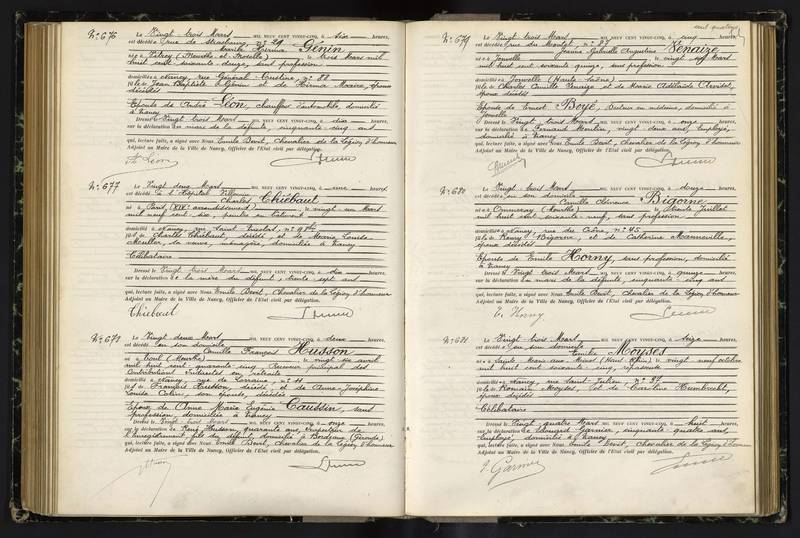 N° 676 Le Vingt trois Mars MIL NEUF CENT VINGT-CINQ, à six heures,
est décédée rue de Strasbourg, n° 29 Marie Hermina Génin
né à Vitrey (Meurthe et Moselle) le trois Mars mil
huit cent soixante douze, sans profession
domiciliée à Nancy, rue Général Custine, n° 88
fille de Jean Baptiste Génin et de Maire, époux
décédés
Epouse de André Léon, chauffeur d'automobile, domicilié
à Nancy
Dressé le Vingt trois Mars à dix heures,
sur la déclaration du mari de la défunte, cinquante cinq ans
qui, lecture faite, a signé avec Nous, Emile Chevalier de la Légion d'honneur
Adjoint au Maire de la Ville de Nancy, Officier de l'Etat civil par délégation.
Léon
N° 677 Le Vingt deux Mars MIL NEUF CENT VINGT-CINQ, à une heure
est décédé à l'Hôpital Villemin Charles Thiébaut
né à Paris (XIXe arrondissement) le vingt un Mars
mil neuf cent six, peintre en bâtiment
domicilié à Nancy, rue Saint Nicolas, n°
fils de Charles Thiébaut, décédé et de Maria Louise
Meuller, sa veuve, ménagère, domiciliée à Nancy
Célibataire
Dressé le Vingt trois Mars à dix heures,
sur la déclaration de la mère du défunt, trente sept ans
qui, lecture faite, a signé avec Nous Emile Chevalier de la Légion d'honneur
Adjoint au Maire de la Ville de Nancy, Officier de l'Etat civil par délégation.
Thiébaut
N° 678 Le Vingt deux Mars MIL NEUF CENT VINGT-CINQ, à deux heures,
est décédé en son domicile Camille François Husson
né à Toul (Meurthe) le vingt six avril
mil huit cent quarante cinq, Receveur principal des
Contributions Indirectes en retraite
domicilié à Nancy, rue de Lorraine, n° 11
fils de François Husson, décédé et de Anne Joséphine
Louise Colin, son épouse, décédée
Epoux de Anne Marie Eugénie Caussin, sans
profession, domiciliée à Nancy
Dressé le Vingt trois Mars à onze heures,
sur la déclaration de René Husson, quarante ans, Inspecteur de
l'Enregistrement, fils du défunt, domicilié à Bordeaux (Gironde)
qui, lecture faite, a signé avec Nous Emile Chevalier de la Légion d'honneur
Adjoint au Maire de la Ville de Nancy, Officier de l'Etat civil par délégation.
N° 679 Le Vingt trois Mars MIL NEUF CENT VINGT-CINQ, à cinq heures,
est décédée rue du Montet, n° Jeanne Gabrielle Augustine Venaize
née à Jonvelle le vingt Mars
mil huit cent soixante quinze, sans profession
domiciliée à Jonvelle (Haute-Saône)
fille de Charles Camille Venaize et de Marie Adélaïde
époux décédés
Epouse de Ernest Boyé, Docteur en médecine, domicilié à
Jonvelle
Dressé le Vingt trois Mars à onze heures,
sur la déclaration de Fernand Meulin, vingt deux ans, Employé,
domicilié à Nancy
qui, lecture faite, a signé avec Nous Emile Chevalier de la Légion d'honneur
Adjoint au Maire de la Ville de Nancy, Officier de l'Etat civil par délégation.
N° 680 Le Vingt trois Mars MIL NEUF CENT VINGT-CINQ, à douze heures,
est décédée en son domicile Camille Clémence Bigorne
née à Ommeray (Meurthe) le trente Juillet
mil huit cent soixante neuf, sans profession
domiciliée à Nancy, rue n° 45
fille de Rémy Bigorne, et de Catherine
époux décédés
Epouse de Emile Horny, sans profession, domicilié
à Nancy
Dressé le Vingt trois Mars à quinze heures,
sur la déclaration du mari de la défunte, cinquante cinq ans
qui, lecture faite, a signé avec Nous Emile Chevalier de la Légion d'honneur
Adjoint au Maire de la Ville de Nancy, Officier de l'Etat civil par délégation.
E. Horny
N° 681 Le Vingt trois Mars MIL NEUF CENT VINGT-CINQ, à seize heures,
est décédée en son domicile Emilie Moyses
née à Sainte Marie aux Mines (Haut Rhin) le vingt neuf octobre
mil huit cent soixante cinq, repasseuse
domiciliée à Nancy, rue Saint Julien, n° 37
fille de Romain Moyses, et de Caroline Humbrecht,
époux décédés
Célibataire
Dressé le Vingt quatre Mars à huit heures,
sur la déclaration de Edouard Garnier, cinquante quatre ans
employé, domicilié à Nancy
qui, lecture faite, a signé avec Nous Emile Chevalier de la Légion d'honneur
Adjoint au Maire de la Ville de Nancy, Officier de l'Etat civil par délégation.
Garnier